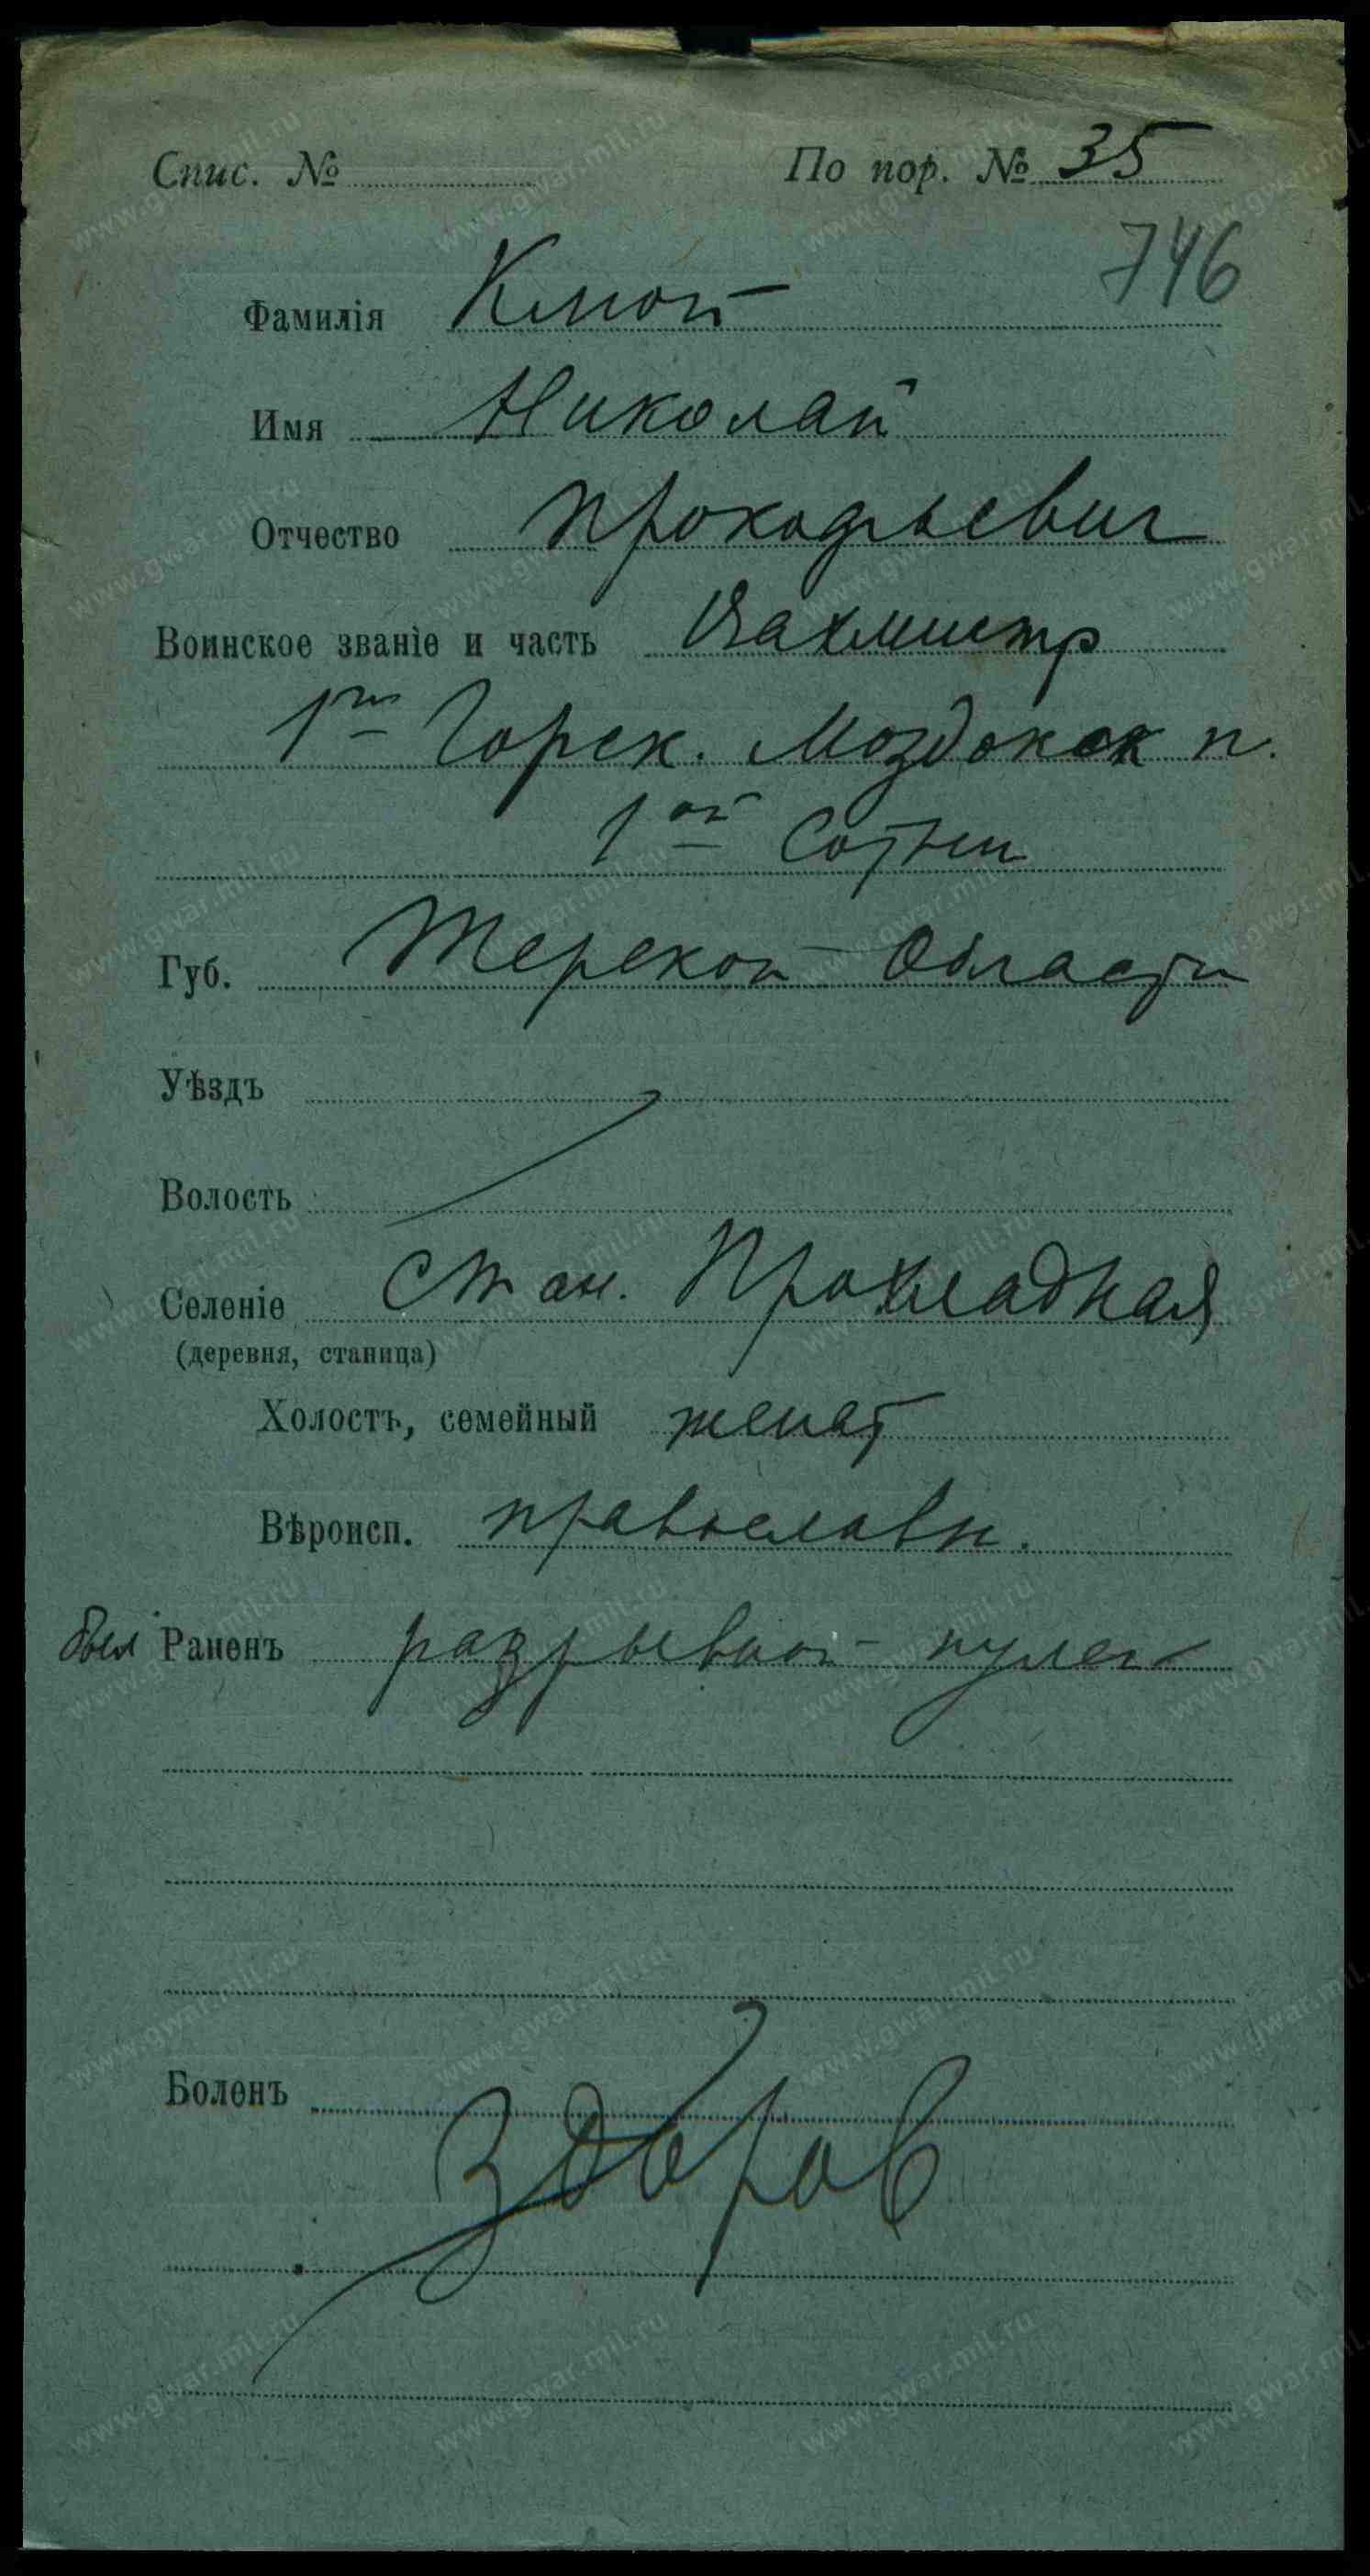 Спис. № По пор. № 35
746
Фамилія Клюй
Имя Николай
Отчество Прокофьевич
Воинское званіе и часть Вахмистр
1го Горск. Моздокск п.
1ой Сотни
Губ. Терской Области
Уѣздъ
Волость
Селеніе Стан. Прохладная
(деревня, станица)
Холостъ, семейный женат
Вѣроисп. православн.
был Раненъ разрывной пулей
Боленъ
Здоров